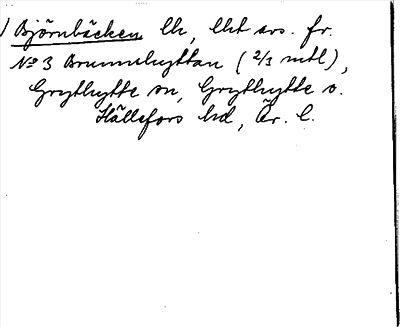 ) Björnbäcken lh, lht avs. fr.
No 3 Brunnshyttan (2/3 mtl),
Grythytte sn, Grythytte o.
Hällefors hd, Ör. l.